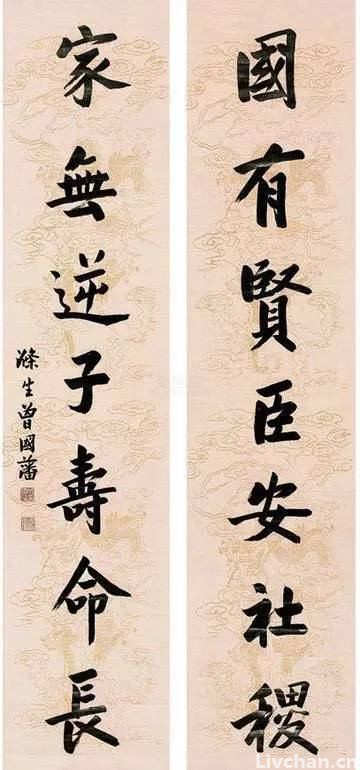 國有賢臣安社稷
家無逆子壽命長
滌生曾國藩
Livchan.cn